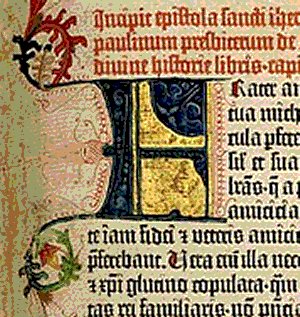 Incipit epistola sancti ihero
paulinum presbiterum de
divine historie libris. capi
F
Rater am
tua mich
tula pfere
sil' et sua
lrãs. q̃ a
amicicia
te iam fidei ⁊ veteris amici
p̃ferebant. Vera eni illa nec
⁊ xp̃i glutino copulata. q̃m
tas rei familiaris. nõ p̃n